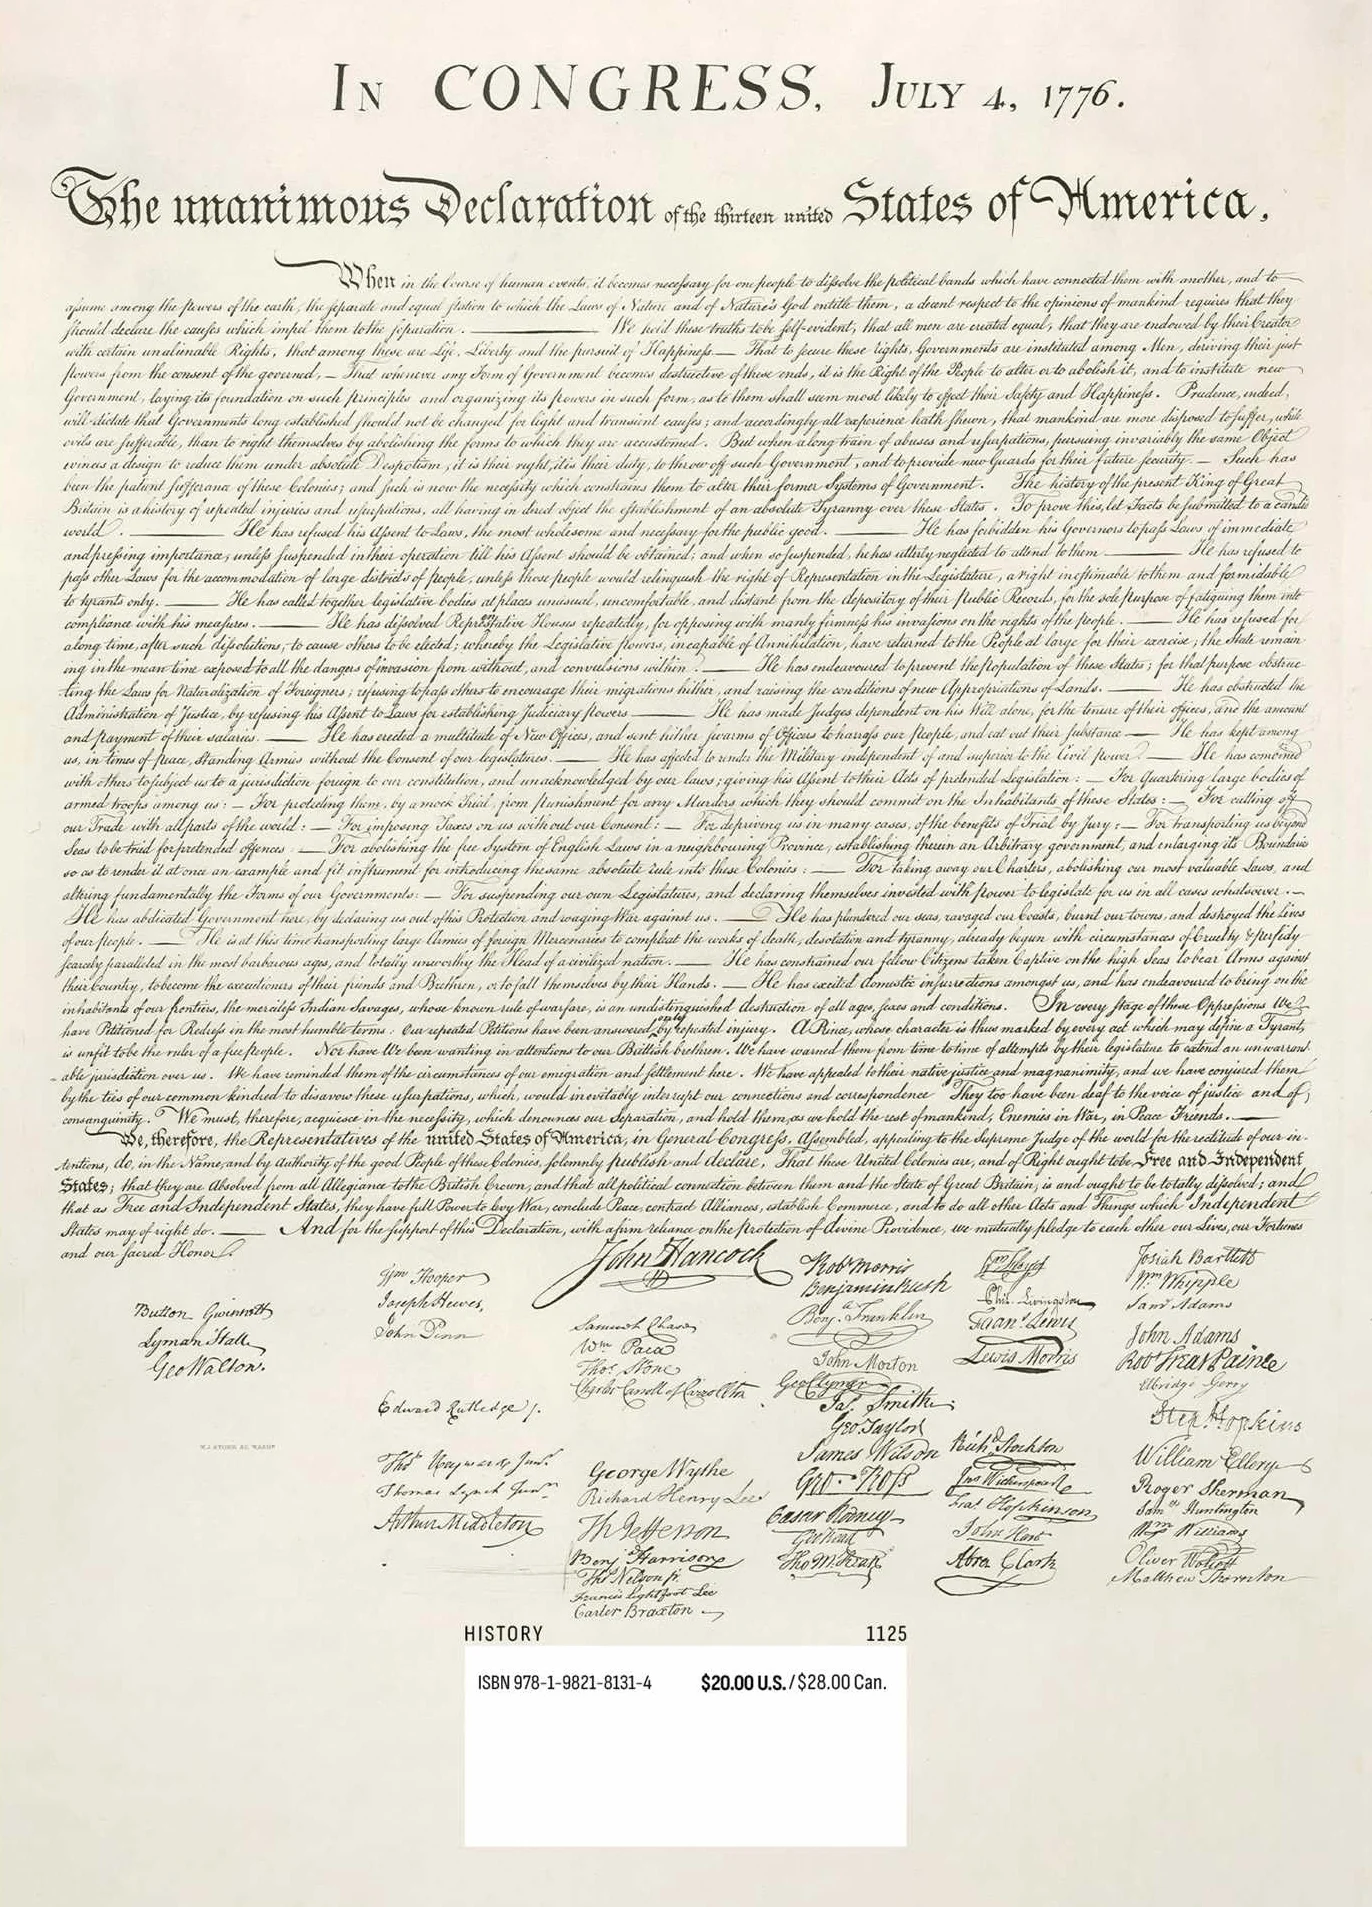 IN CONGRESS, JULY 4, 1776.
The unanimous Declaration of the thirteen united States of America,
When in the Course of human events, it becomes necessary for one people to dissolve the political bands which have connected them with another, and to
assume among the powers of the earth, the separate and equal station to which the Laws of Nature and of Nature's God entitle them, a decent respect to the opinions of mankind requires that they
should declare the causes which impel them to the separation. — We hold these truths to be self-evident, that all men are created equal, that they are endowed by their Creator
with certain unalienable Rights, that among these are Life, Liberty and the pursuit of Happiness. — That to secure these rights, Governments are instituted among Men, deriving their just
powers from the consent of the governed, — That whenever any Form of Government becomes destructive of these ends, it is the Right of the People to alter or to abolish it, and to institute new
Government, laying its foundation on such principles and organizing its powers in such form, as to them shall seem most likely to effect their Safety and Happiness. Prudence, indeed,
will dictate that Governments long established should not be changed for light and transient causes; and accordingly all experience hath shewn, that mankind are more disposed to suffer, while
evils are sufferable, than to right themselves by abolishing the forms to which they are accustomed. But when a long train of abuses and usurpations, pursuing invariably the same Object
evinces a design to reduce them under absolute Despotism, it is their right, it is their duty, to throw off such Government, and to provide new Guards for their future security. — Such has
been the patient sufferance of these Colonies; and such is now the necessity which constrains them to alter their former Systems of Government. The history of the present King of Great
Britain is a history of repeated injuries and usurpations, all having in direct object the establishment of an absolute Tyranny over these States. To prove this, let Facts be submitted to a candid
world. — He has refused his Assent to Laws, the most wholesome and necessary for the public good. — He has forbidden his Governors to pass Laws of immediate
and pressing importance, unless suspended in their operation till his Assent should be obtained; and when so suspended, he has utterly neglected to attend to them. — He has refused to
pass other Laws for the accommodation of large districts of people, unless those people would relinquish the right of Representation in the Legislature, a right inestimable to them and formidable
to tyrants only. — He has called together legislative bodies at places unusual, uncomfortable, and distant from the depository of their Public Records, for the sole purpose of fatiguing them into
compliance with his measures. — He has dissolved Representative Houses repeatedly, for opposing with manly firmness his invasions on the rights of the people. — He has refused for
a long time, after such dissolutions, to cause others to be elected; whereby the Legislative powers, incapable of Annihilation, have returned to the People at large for their exercise; the State remain-
ing in the mean time exposed to all the dangers of invasion from without, and convulsions within. — He has endeavoured to prevent the population of these States; for that purpose obstruc-
ting the Laws for Naturalization of Foreigners; refusing to pass others to encourage their migrations hither, and raising the conditions of new Appropriations of Lands. — He has obstructed the
Administration of Justice, by refusing his Assent to Laws for establishing Judiciary powers. — He has made Judges dependent on his Will alone, for the tenure of their offices, and the amount
and payment of their salaries. — He has erected a multitude of New Offices, and sent hither swarms of Officers to harrass our people, and eat out their substance. — He has kept among
us, in times of peace, Standing Armies without the Consent of our legislatures. — He has affected to render the Military independent of and superior to the Civil power. — He has combined
with others to subject us to a jurisdiction foreign to our constitution, and unacknowledged by our laws; giving his Assent to their Acts of pretended Legislation: — For Quartering large bodies of
armed troops among us: — For protecting them, by a mock Trial, from punishment for any Murders which they should commit on the Inhabitants of these States: — For cutting off
our Trade with all parts of the world: — For imposing Taxes on us without our Consent: — For depriving us in many cases, of the benefits of Trial by Jury: — For transporting us beyond
Seas to be tried for pretended offences — For abolishing the free System of English Laws in a neighbouring Province, establishing therein an Arbitrary government, and enlarging its Boundaries
so as to render it at once an example and fit instrument for introducing the same absolute rule into these Colonies: — For taking away our Charters, abolishing our most valuable Laws, and
altering fundamentally the Forms of our Governments: — For suspending our own Legislatures, and declaring themselves invested with power to legislate for us in all cases whatsoever. —
He has abdicated Government here, by declaring us out of his Protection and waging War against us. — He has plundered our seas, ravaged our Coasts, burnt our towns, and destroyed the lives
of our people. — He is at this time transporting large Armies of foreign Mercenaries to compleat the works of death, desolation and tyranny, already begun with circumstances of Cruelty & perfidy
scarcely paralleled in the most barbarous ages, and totally unworthy the Head of a civilized nation. — He has constrained our fellow Citizens taken Captive on the high Seas to bear Arms against
their Country, to become the executioners of their friends and Brethren, or to fall themselves by their Hands. — He has excited domestic insurrections amongst us, and has endeavoured to bring on the
inhabitants of our frontiers, the merciless Indian Savages, whose known rule of warfare, is an undistinguished destruction of all ages, sexes and conditions. In every stage of these Oppressions We
have Petitioned for Redress in the most humble terms: Our repeated Petitions have been answered only by repeated injury. A Prince, whose character is thus marked by every act which may define a Tyrant,
is unfit to be the ruler of a free people. Nor have We been wanting in attentions to our Brittish brethren. We have warned them from time to time of attempts by their legislature to extend an unwarrant-
able jurisdiction over us. We have reminded them of the circumstances of our emigration and settlement here. We have appealed to their native justice and magnanimity, and we have conjured them
by the ties of our common kindred to disavow these usurpations, which, would inevitably interrupt our connections and correspondence They too have been deaf to the voice of justice and of
consanguinity. We must, therefore, acquiesce in the necessity, which denounces our Separation, and hold them, as we hold the rest of mankind, Enemies in War, in Peace Friends. —
We, therefore, the Representatives of the united States of America, in General Congress, Assembled, appealing to the Supreme Judge of the world for the rectitude of our in-
tentions, do, in the Name, and by Authority of the good People of these Colonies, solemnly publish and declare, That these United Colonies are, and of Right ought to be Free and Independent
States; that they are Absolved from all Allegiance to the British Crown, and that all political connection between them and the State of Great Britain, is and ought to be totally dissolved; and
that as Free and Independent States, they have full Power to levy War, conclude Peace, contract Alliances, establish Commerce, and to do all other Acts and Things which Independent
States may of right do. — And for the support of this Declaration, with a firm reliance on the protection of divine Providence, we mutually pledge to each other our Lives, our Fortunes
and our sacred Honor.
Button Gwinnett
Lyman Hall
Geo Walton.
Wm Hooper
Joseph Hewes,
John Penn
Edward Rutledge /.
Thos Heyward Junr.
Thomas Lynch Junr.
Arthur Middleton
John Hancock
Samuel Chase
Wm Paca
Thos Stone
Charles Carroll of Carrollton
George Wythe
Richard Henry Lee
Th Jefferson
Benj Harrison
Thos Nelson jr.
Francis Lightfoot Lee
Carter Braxton
Robt Morris
Benjamin Rush
Benja. Franklin
John Morton
Geo Clymer
Jas. Smith
Geo. Taylor
James Wilson
Geo. Ross
Caesar Rodney
Geo Read
Tho M:Kean
Wm Floyd
Phil. Livingston
Frans. Lewis
Lewis Morris
Richd Stockton
Jno Witherspoon
Fras. Hopkinson
John Hart
Abra Clark
Josiah Bartlett
Wm Whipple
Saml Adams
John Adams
Robt Treat Paine
Elbridge Gerry
Step. Hopkins
William Ellery
Roger Sherman
Samel Huntington
Wm Williams
Oliver Wolcott
Matthew Thornton
HISTORY 1125
ISBN 978-1-9821-8131-4 $20.00 U.S./$28.00 Can.